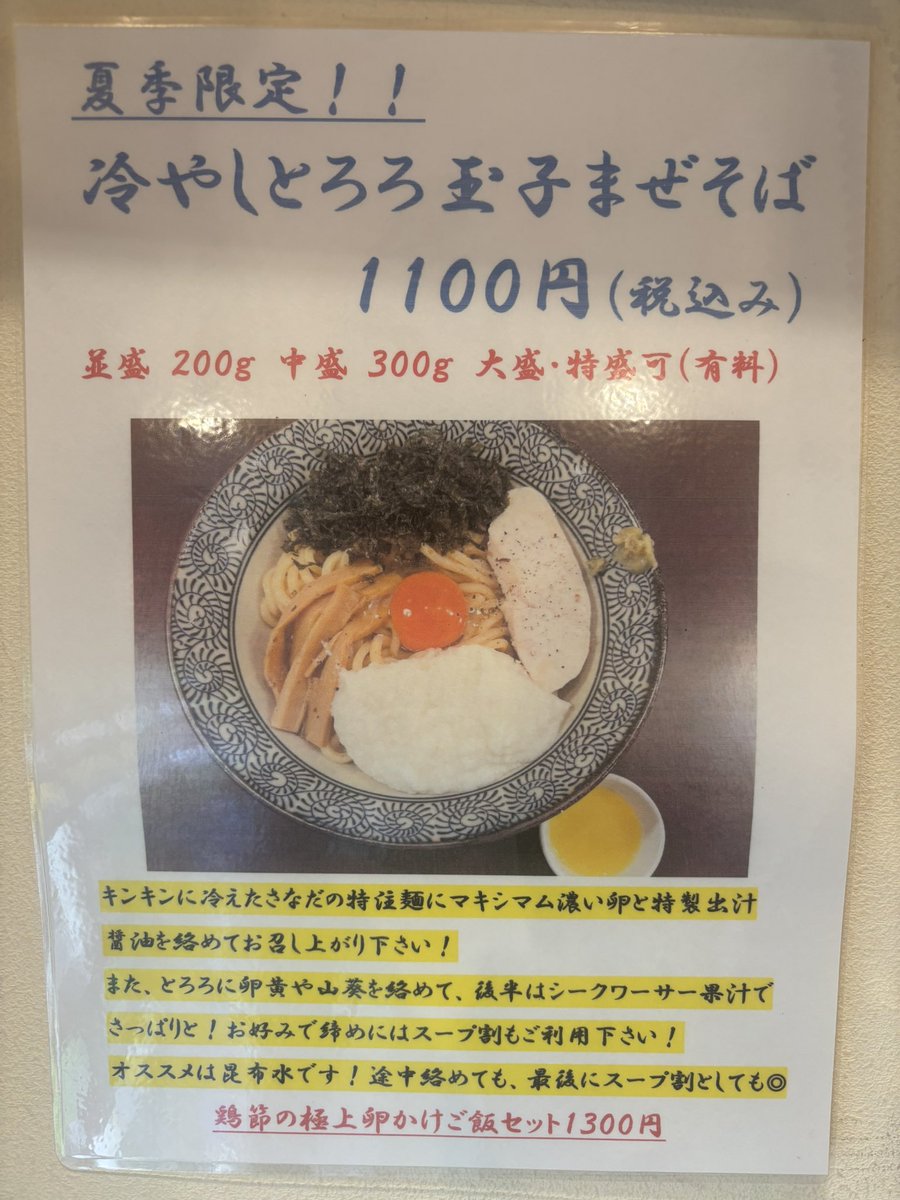 夏季限定！！
冷やしとろろ玉子まぜそば
1100円(税込み)
並盛 200g 中盛 300g 大盛・特盛可(有料)
キンキンに冷えたさなだの特注麺にマキシマム濃い卵と特製出汁
醤油を絡めてお召し上がり下さい！
また、とろろに卵黄や山葵を絡めて、後半はシークワーサー果汁で
さっぱりと！お好みで締めにはスープ割もご利用下さい！
オススメは昆布水です！途中絡めても、最後にスープ割としても◎
鶏節の極上卵かけご飯セット1300円